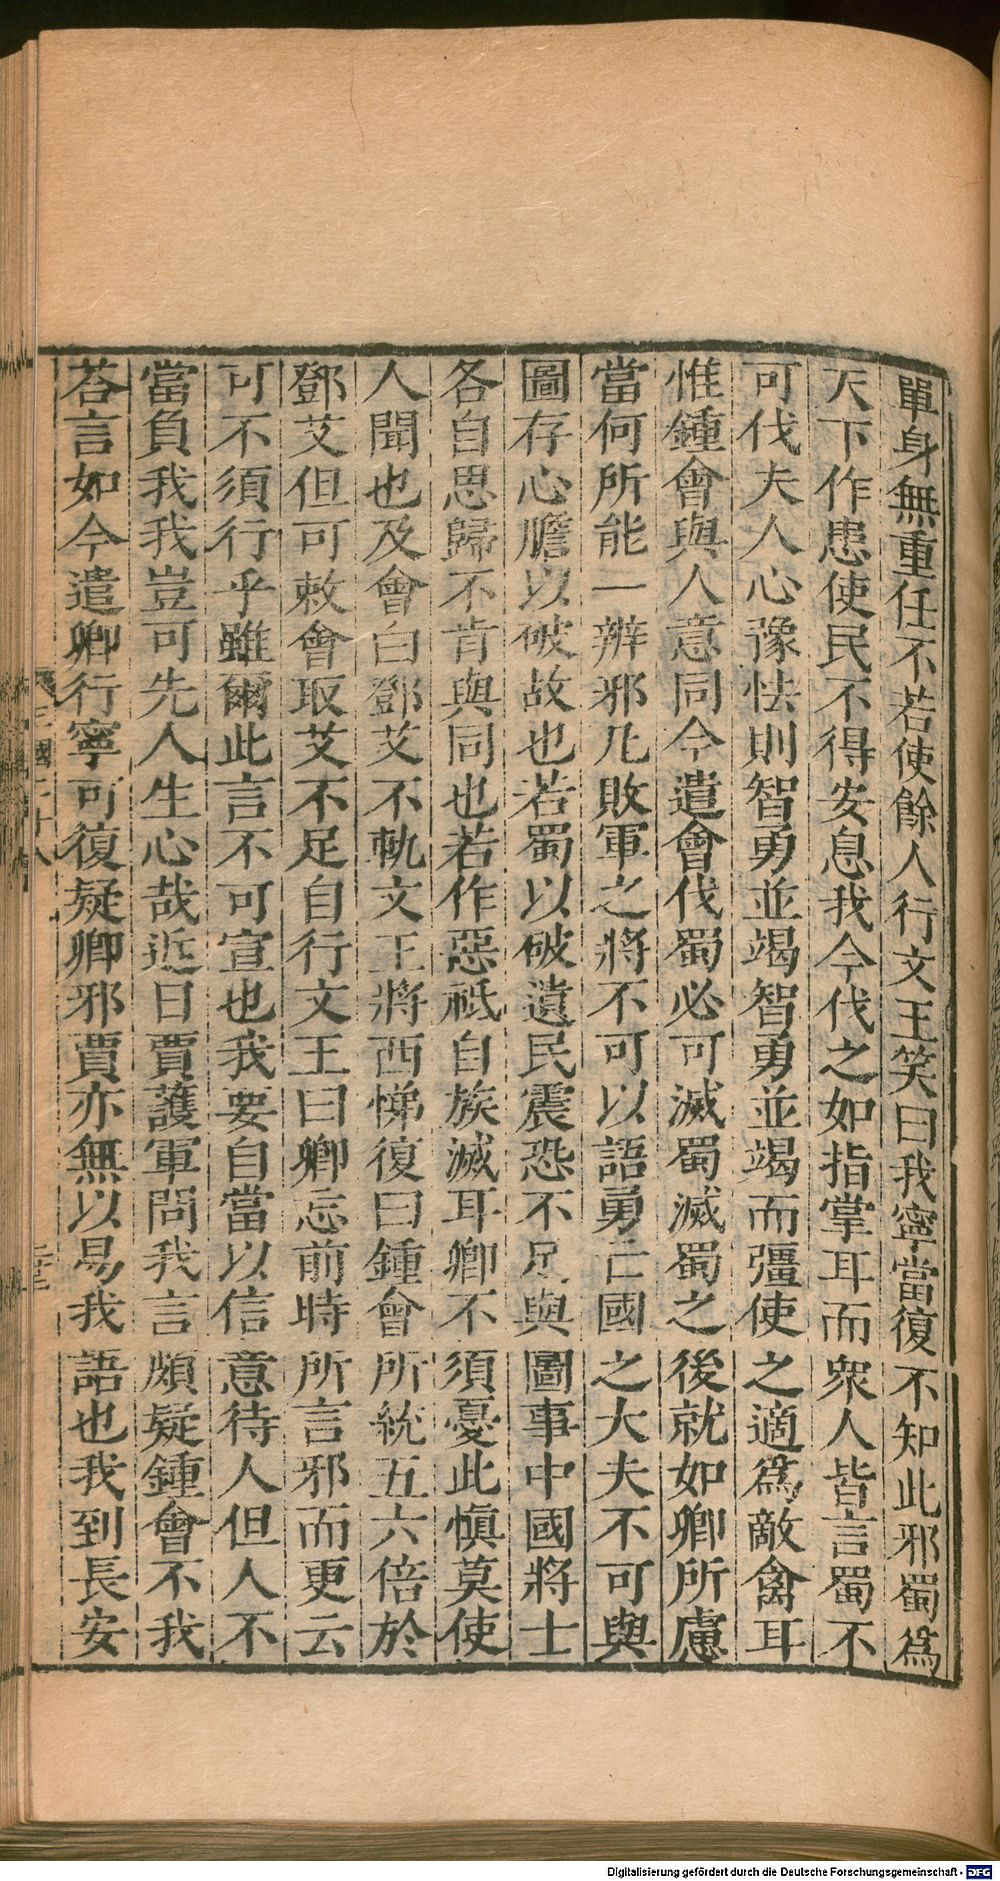 單身無重任不若使餘人行文王笑曰我寧當復不知此邪蜀爲
天下作患使民不得安息我今伐之如指掌耳而衆人皆言蜀不
可伐夫人心豫怯則智勇並竭智勇並竭而彊使之適爲敵禽耳
惟鍾會與人意同今遣會伐蜀必可滅蜀滅蜀之後就如卿所慮
當何所能一辨邪凡敗軍之將不可以語勇亡國之大夫不可與
圖存心膽以破故也若蜀以破遺民震恐不足與圖事中國將士
各自思歸不肯與同也若作惡祇自族滅耳卿不須憂此慎莫使
人聞也及會白鄧艾不軌文王將西悌復曰鍾會所統五六倍於
鄧艾但可敕會取艾不足自行文王曰卿忘前時所言邪而更云
可不須行乎雖爾此言不可宣也我要自當以信意待人但人不
當負我我豈可先人生心哉近日賈護軍問我言頗疑鍾會不我
荅言如今遣卿行寧可復疑卿邪賈亦無以易我語也我到長安
三國二十八
Digitalisierung gefördert durch die Deutsche Forschungsgemeinschaft - DFG